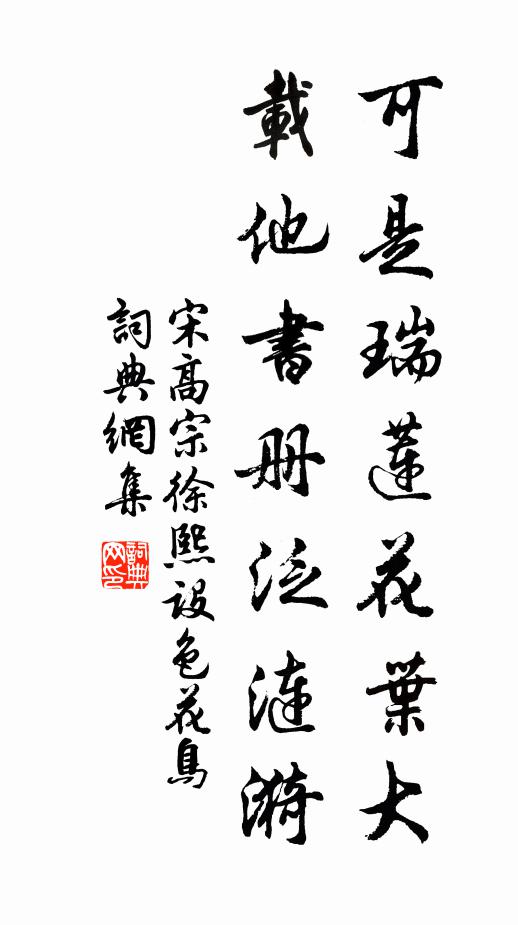 可是瑞蓮花葉大
載他書册泛漣漪
宋高宗徐熙設色花鳥
詞典網集
詞典网印